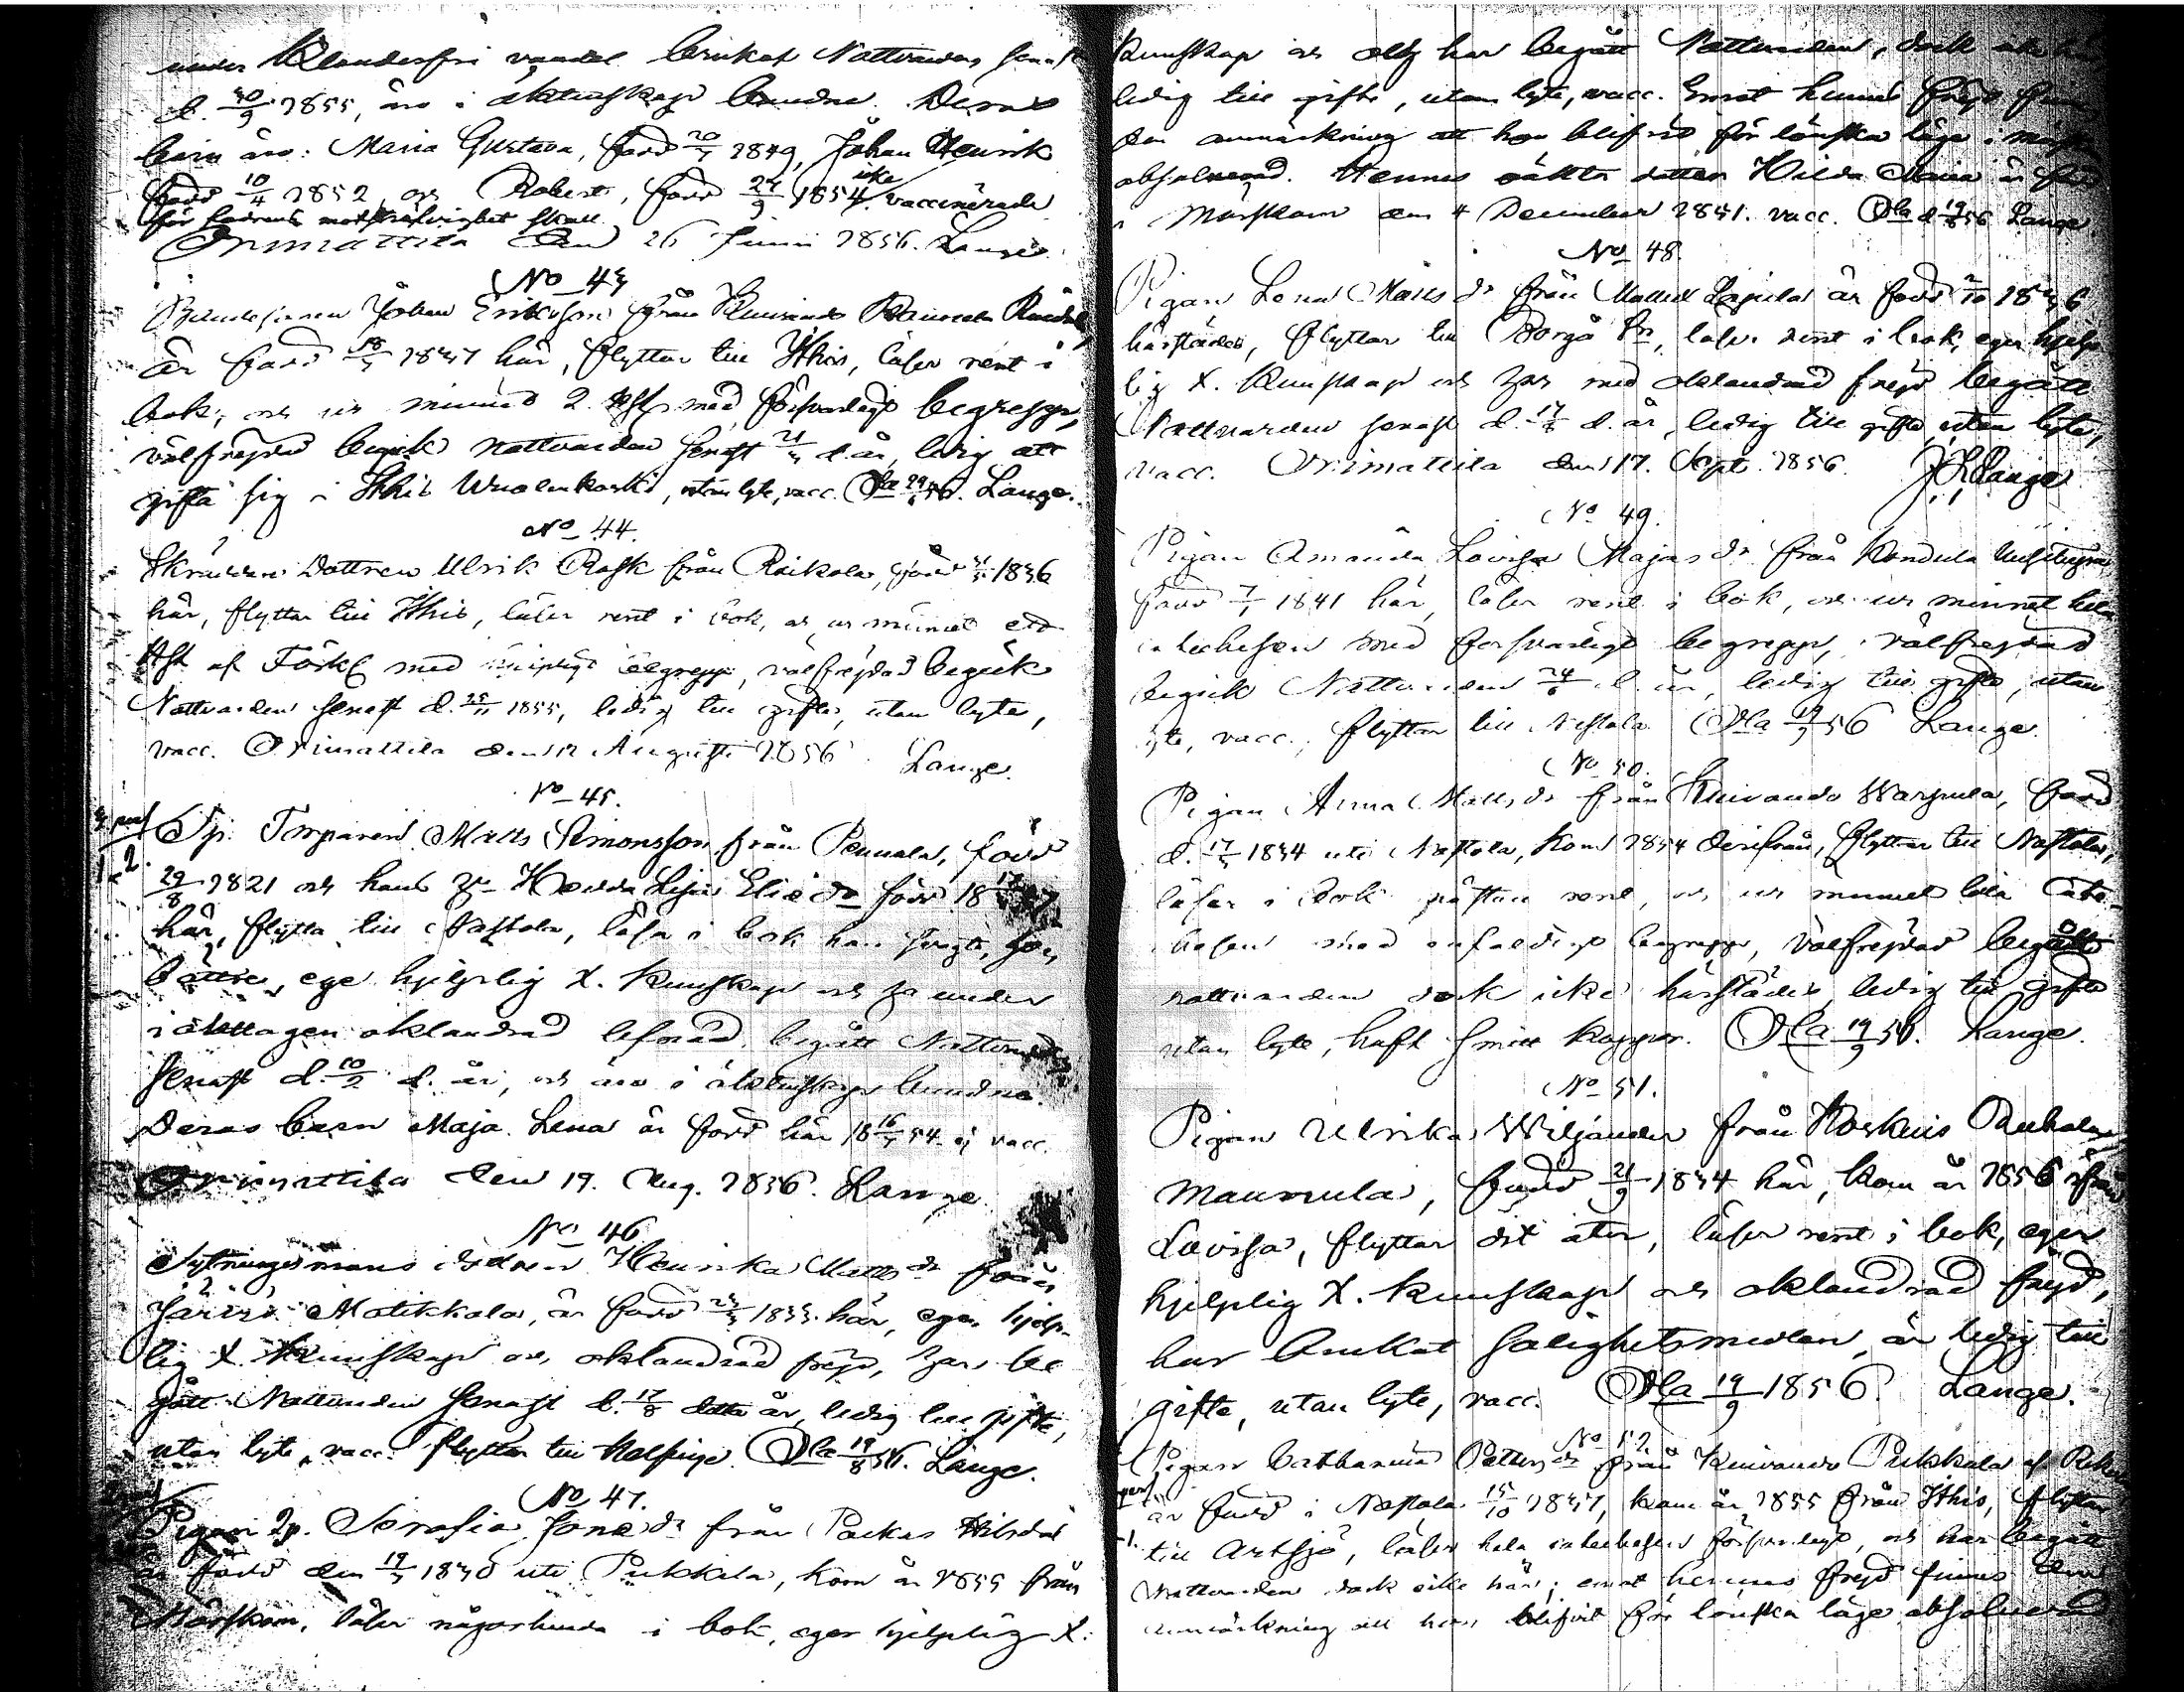 under Klanderfri vandel brukat Nattvarden senast
d. 30/9 1855, äro i äktenskap bundne. Deras
barn äro: Maria Gustava, född 20/7 1849, Johan Henrik
född 10/4 1852, och Robert, född 27/9 1854 icke vaccinerade
för fadrens motsträfvighet skull.
Orimattila den 26 Junii 1856. Lange.
No 43
Johan Eriksson från Kuivando
är född 18/ här, flyttar till Ithis, läser rent i
bok, och ur minnet 2 med försvarligt begrepp,
välfrejdad begick nattvarden senast d. år, ledig att
gifta sig i Ithis Wuolenkoski, utan lyte, vacc. Ola 56. Lange.
No 44.
Skräddare Dottren Ulrik Rask från Raikola, född 1836
här, flyttar till Ithis, läser rent i bok, och ur minnet
af med begrepp, välfrejdad begick
Nattvarden senast d. 25/11 1855, ledig till gifte, utan lyte,
vacc. Orimattila den 12 Augusti 1856. Lange.
No 45.
Torparen Matts Simonsson från Pennala, född
29/8 1821 och hans Hedda Lisa Elias dr född 18
här, flytta till Nastola, läsa i bok han svagt, hon
bättre, ega hjelplig X. kunskap och ha under
i akttagen oklandrad lefnad begått Nattvarden
senast d. 10/2 d. år, och äro i äktenskap bundne.
Deras barn Maja Lena är född här 18 16/ 54 ej vacc.
Orimattila den 19. Aug. 1856. Lange
No 46
Sytningsmans dottren Henrika Matts dr från
Järvi Matikkala, är född här, eger hjelp-
lig X. kunskap och oklandrad frejd, har be
gått Nattvarden senast d. 17/8 detta år, ledig till gifte,
utan lyte, vacc. flyttar till Ola 19/8 56. Lange.
No 47.
Pigan Serafia Jonas dr från Packas
är född den uti Pukkila, kom år 1855 från
Mörskom, läser någorlunda i bok, eger hjelplig X.
kunskap och har begått Nattvarden, dock
ledig till gifte, utan lyte, vacc. Emot hennes frejd
den anmärkning att hon blifvit för lönska läge i
absolverad. Hennes oäkta dotter Hilda Maria är född
i Mörskom den 4 December 1851. vacc. Ola d 19/8 56 Lange
No 48.
Pigan Lena Matts dr från Mallusi är född
härstädes, flyttar till Borgå, läser rent i bok, eger hjelp
lig X. kunskap och har med oklandrad frejd begått
Nattvarden senast d. 17/8 d. år, ledig till gifte, utan lyte,
vacc. Orimattila den 17. Sept. 1856. Lange
No 49.
Pigan Amanda Lovisa Majas dr från Kondula
född 7/1 1841 här, läser rent i bok, och ur minnet hela
catechesen med försvarligt begrepp, välfrejdad
begick Nattvarden 24/6 d. år, ledig till gifte, utan
lyte, vacc., flyttar till Nastola Ola 19/9 56 Lange.
No 50.
Pigan Anna Matts dr från Kuivando Warpula, född
d. 17/ 1834 uti Nastola, kom 1854 derifrån, flyttar till Nastola,
läser i bok nästan rent, och ur minnet hela Cate-
chesen med enfaldigt begrepp, välfrejdad begått
nattvarden dock icke härstädes, ledig till gifte
utan lyte, haft små koppor. Ola 19/9 56. Lange.
No 51.
Pigan Ulrika Wiljander från Koskus
Maunula, född 21/9 1834 här, kom år 1856 ifrån
Lovisa, flyttar dit åter, läser rent i bok, eger
hjelplig X. kunskap och oklandrad frejd,
har brukat salighetsmedlen, är ledig till
gifte, utan lyte, vacc. Ola 19/9 1856. Lange.
No 52.
Pigan Catharina Petters dr från Kuivando Pukkala
är född i Nastola 15/10 1837, kom år 1855 från Ithis, flyttar
till Artsjö, läser hela catechesen försvarligt, och har begått
Nattvarden dock icke här; emot hennes frejd finnes den
anmärkning att hon blifvit för lönska läge absolverad